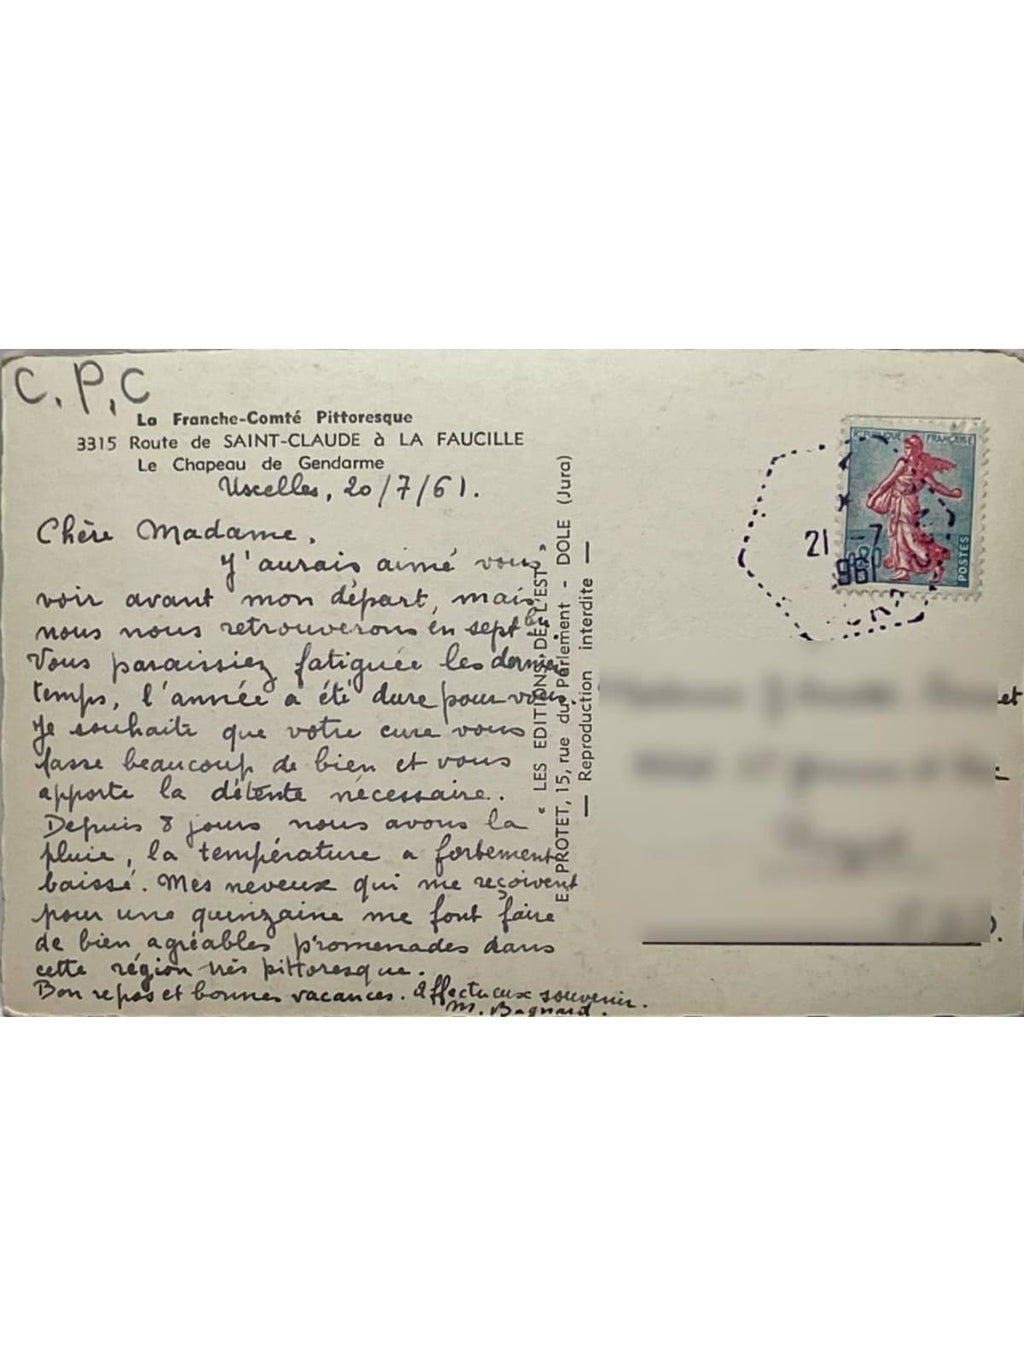 C.P.C
La Franche-Comté Pittoresque
3315 Route de SAINT-CLAUDE à LA FAUCILLE
Le Chapeau de Gendarme
Uxelles, 20/7/61.
Chère Madame,
J'aurais aimé vous
voir avant mon départ, mais
nous nous retrouverons en septbre
Vous paraissiez fatiguée les derniers
temps, l'année a été dure pour vous.
Je souhaite que votre cure vous
fasse beaucoup de bien et vous
apporte la détente nécessaire.
Depuis 8 jours nous avons la
pluie, la température a fortement
baissé. Mes neveux qui me reçoivent
pour une quinzaine me font faire
de bien agréables promenades dans
cette région très pittoresque.
Bon repos et bonnes vacances. Affectueux souvenir.
M. Bagnard.
" LES EDITIONS DE L'EST "
E. PROTET, 15, rue du Parlement - DOLE (Jura)
— Reproduction interdite —
REPUBLIQUE FRANÇAISE
0,20
POSTES
21 -7
1961
et